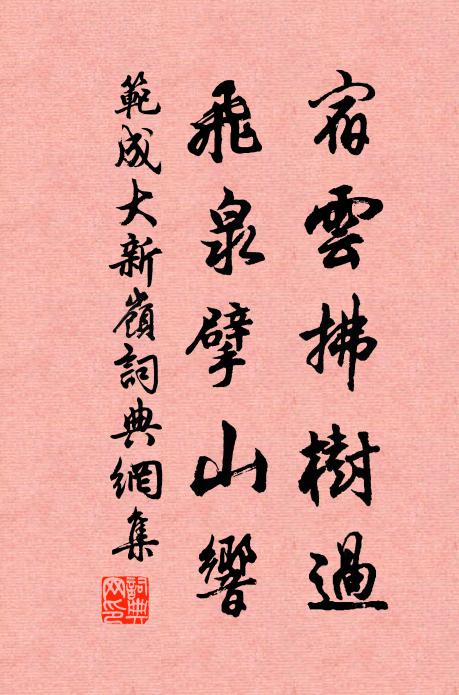 宿雲拂樹過
飛泉擘山響
範成大新嶺詞典網集
詞典網印